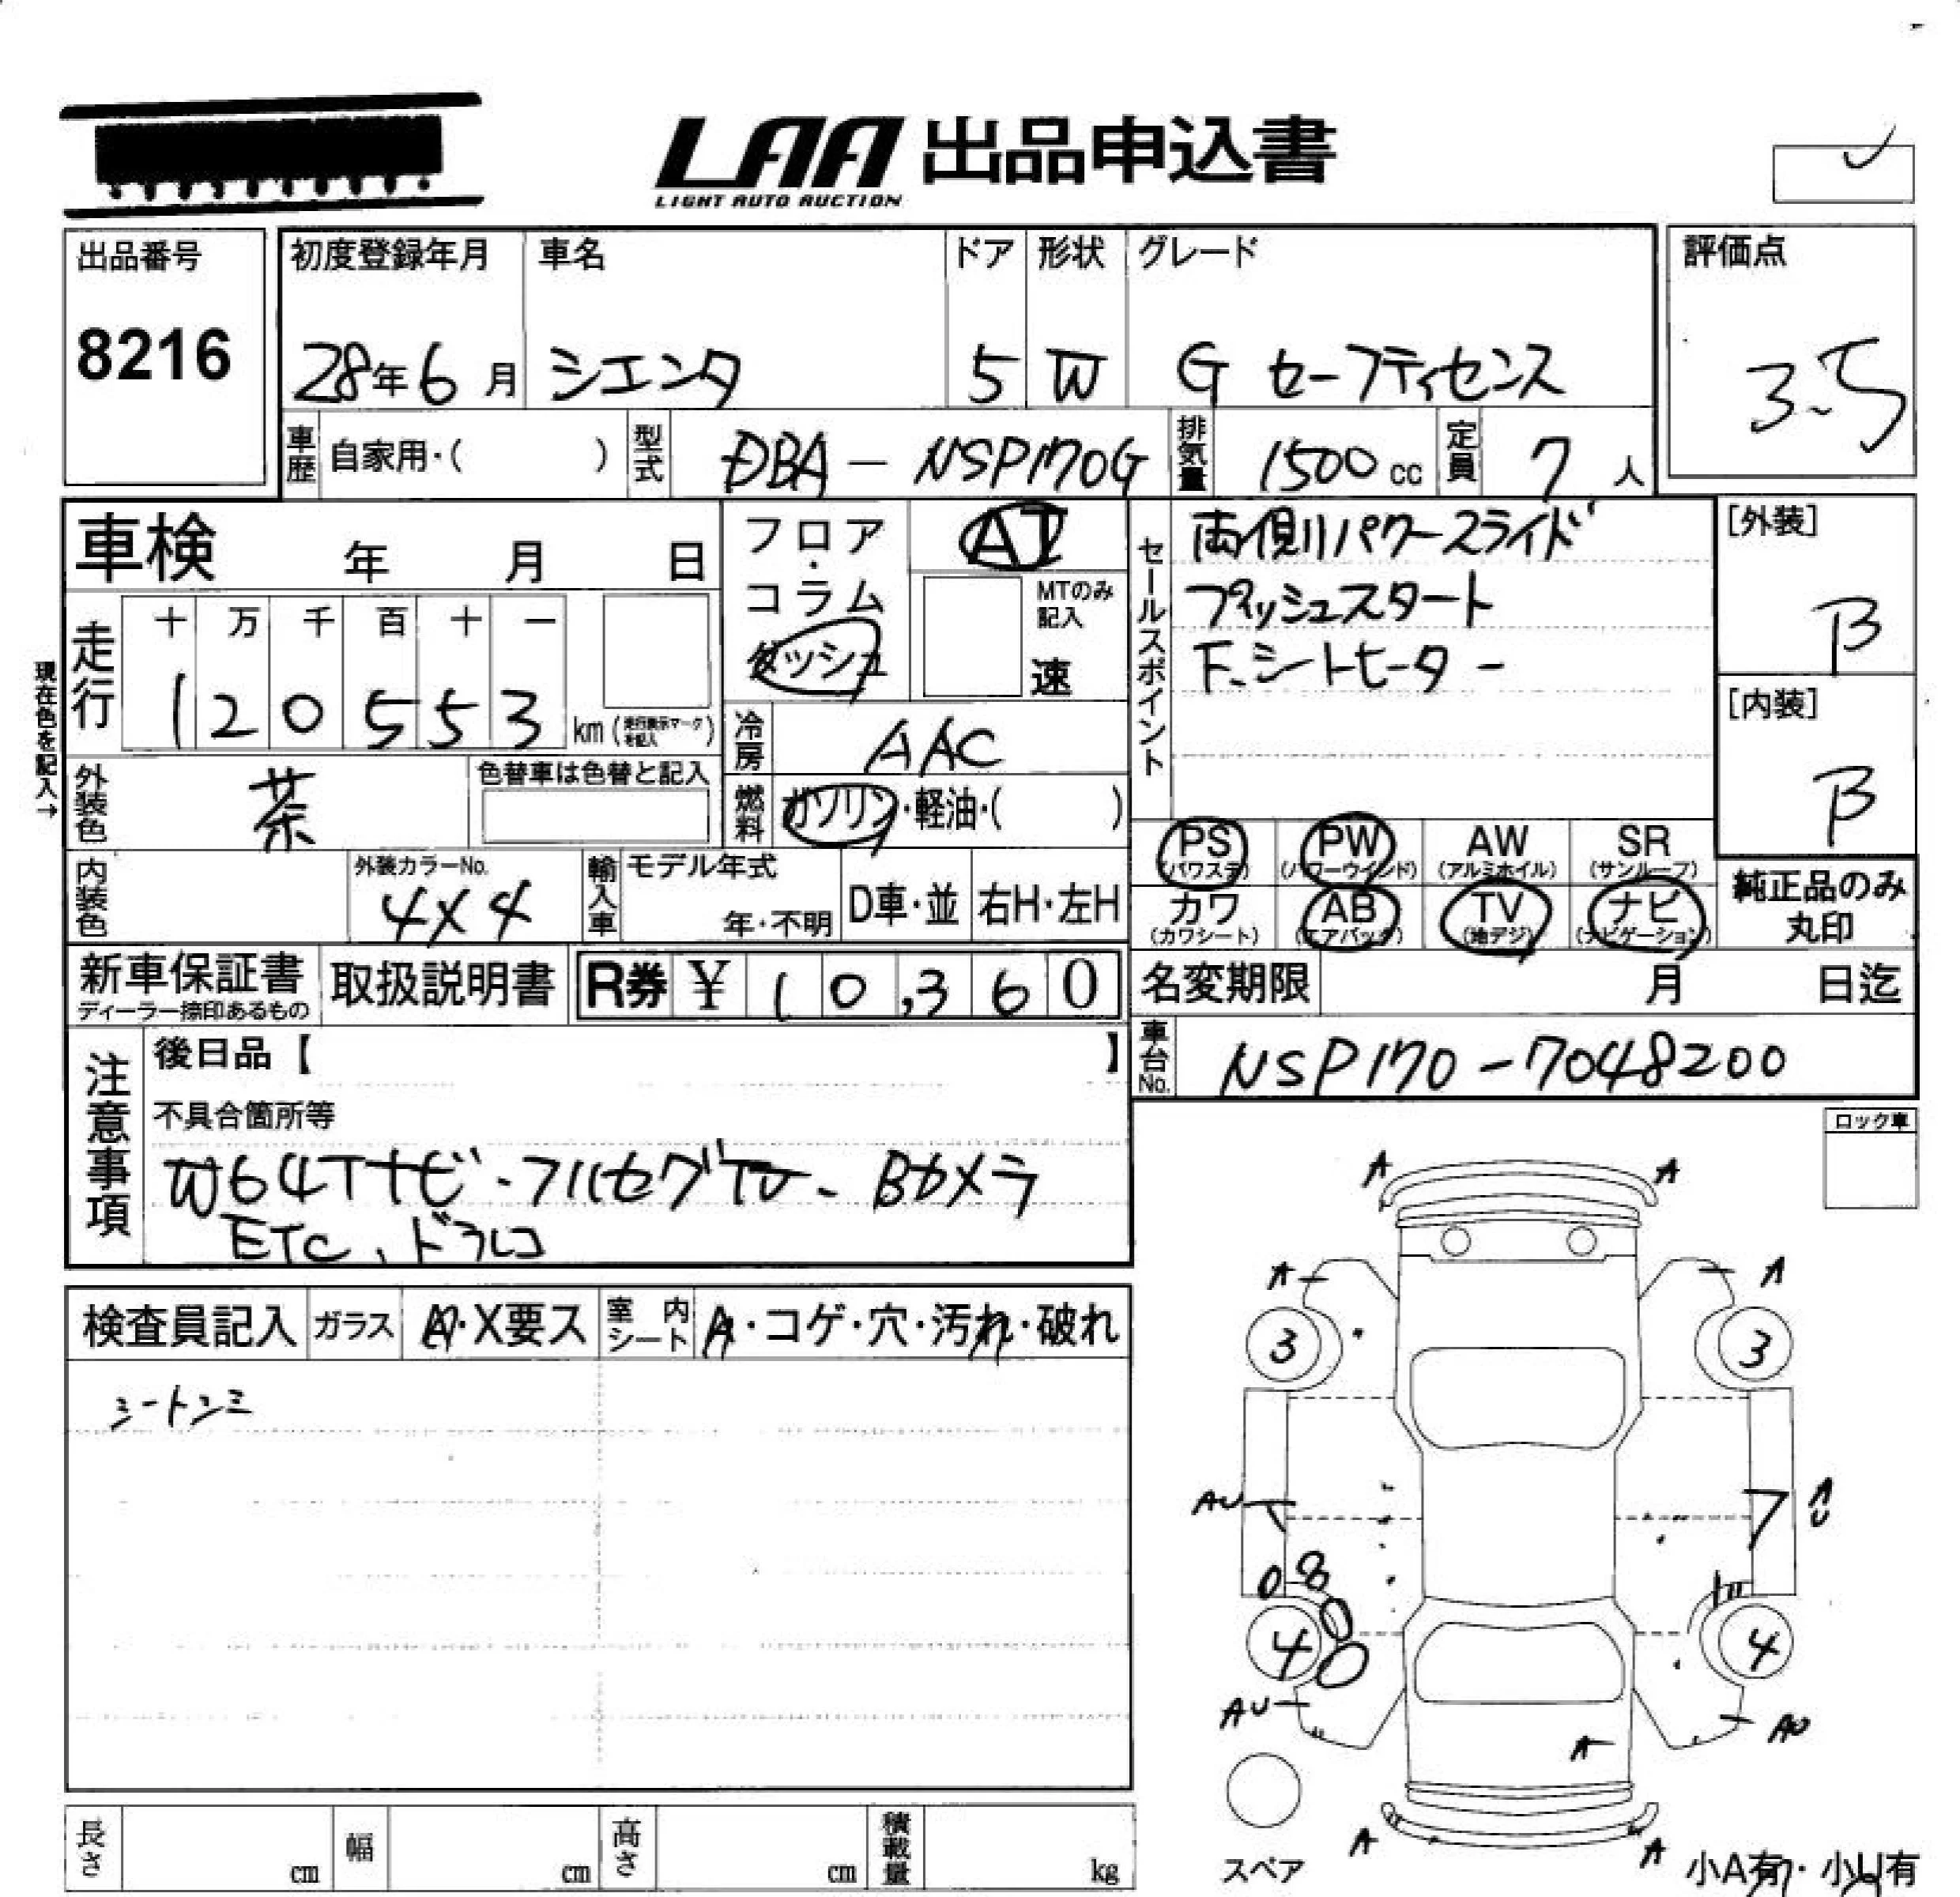 LAA 出品申込書
LIGHT AUTO AUCTION
出品番号
8216
初度登録年月 車名 ドア 形状 グレード
28年6月 シエンタ 5 W G セーフティセンス
評価点
3.5
車歴 自家用・( ) 型式 DBA-NSP170G 排気量 1500cc 定員 7人
車検 年 月 日
フロア・コラム
ダッシュ
AT
MTのみ記入
速
セールスポイント
両側パワースライド
プッシュスタート
F.シートヒーター
[外装]
B
[内装]
B
現在色を記入→
走行 十 万 千 百 十 一
120553 km (走行表示マークを記入)
冷房 AAC
外装色 茶 色替車は色替と記入
燃料 ガソリン・軽油・( )
PS (パワステ) PW (パワーウインド) AW (アルミホイル) SR (サンルーフ)
カワ (カワシート) AB (エアバック) TV (地デジ) ナビ (ナビゲーション)
純正品のみ丸印
内装色 外装カラーNo. 4X4 輸入車 モデル年式 年・不明 D車・並 右H・左H
新車保証書 ディーラー捺印あるもの 取扱説明書 R券 ¥ 10,360
名変期限 月 日迄
車台No. NSP170-7048200
注意事項
後日品【 】
不具合箇所等
W64Tナビ・フルセグTV・Bカメラ
ETC、ドラレコ
ロック車
検査員記入 ガラス A・X要ス 室内シート A・コゲ・穴・汚れ・破れ
シートシミ
A A
A A
3 3
AU AU
4 4
AU AU
A
A A
スペア
小A有・小U有
長さ cm 幅 cm 高さ cm 積載量 kg